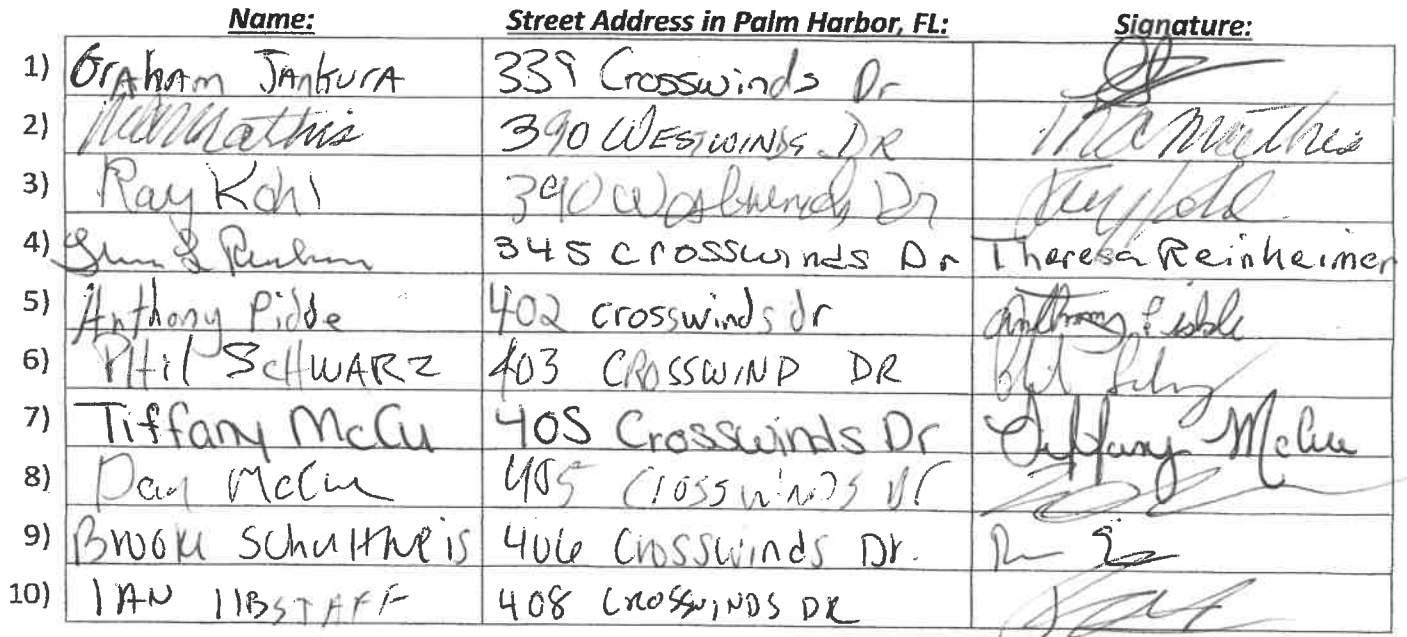 Name: Street Address in Palm Harbor, FL: Signature:
1) Graham Jankura 339 Crosswinds Dr
2) Mathis 390 WESTWINDS DR Mathis
3) Ray Kohl 390 Westwinds Dr Ray Kohl
4) 345 Crosswinds Dr Theresa Reinheimer
5) Anthony Pidde 402 crosswinds dr Anthony Pidde
6) PHil SCHWARZ 403 CROSSWIND DR Phil
7) Tiffany McCu 405 Crosswinds Dr Tiffany McCue
8) Dan McCue 405 Crosswinds Dr
9) Brooke Schultheis 406 Crosswinds Dr.
10) IAN 408 CROSSWINDS DR